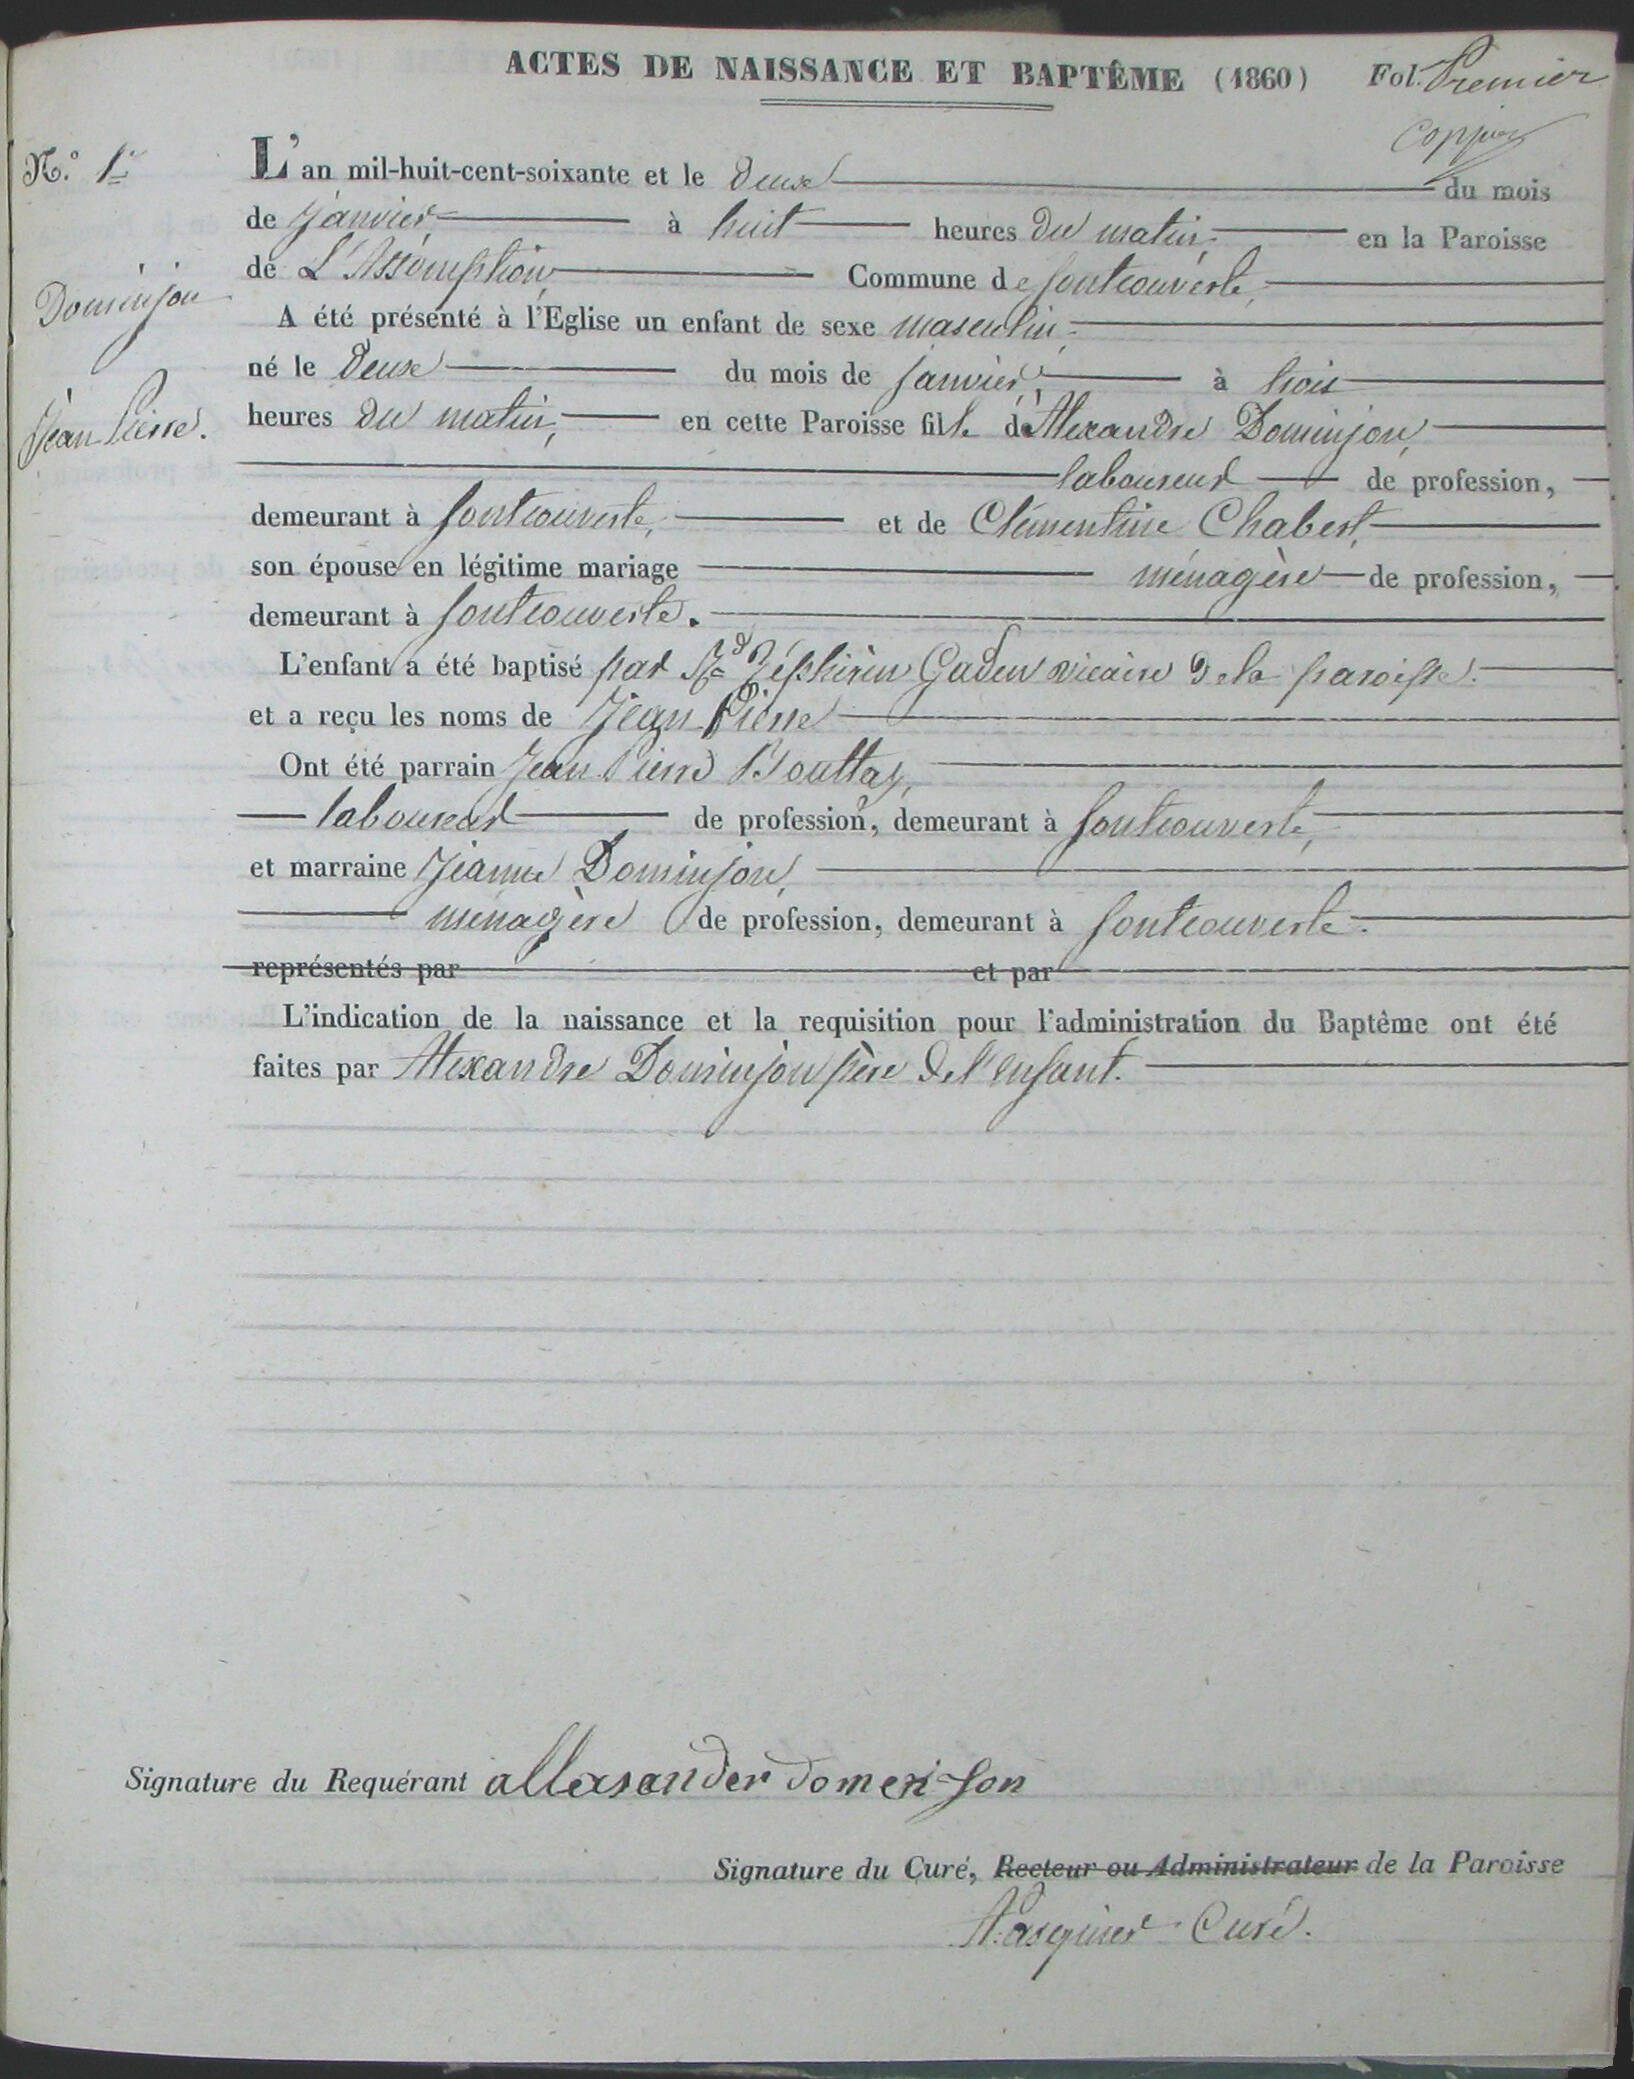 ACTES DE NAISSANCE ET BAPTÊME (1860) Fol. Premier
N.º 1er
L'an mil-huit-cent-soixante et le deux du mois
de janvier à huit heures du matin, en la Paroisse
de L'Assomption, Commune de fontcouverte,
Dominjon
Jean Pierre.
A été présenté à l'Eglise un enfant de sexe masculin
né le deux du mois de janvier, à trois
heures du matin, en cette Paroisse fils d'Alexandre Dominjon,
laboureur de profession,
demeurant à fontcouverte, et de Clémentine Chabert,
son épouse en légitime mariage ménagère de profession,
demeurant à fontcouverte.
L'enfant a été baptisé par Rd Zéphirin Gaden vicaire de la paroisse.
et a reçu les noms de Jean Pierre
Ont été parrain Jean Pierre Bouttaz,
laboureur de profession, demeurant à fontcouverte,
et marraine Jeanne Dominjon,
ménagère de profession, demeurant à fontcouverte.
représentés par et par
L'indication de la naissance et la requisition pour l'administration du Baptême ont été
faites par Alexandre Dominjon père de l'enfant.
Signature du Requérant allexander domeni-son
Signature du Curé, Recteur ou Administrateur de la Paroisse
Curé.